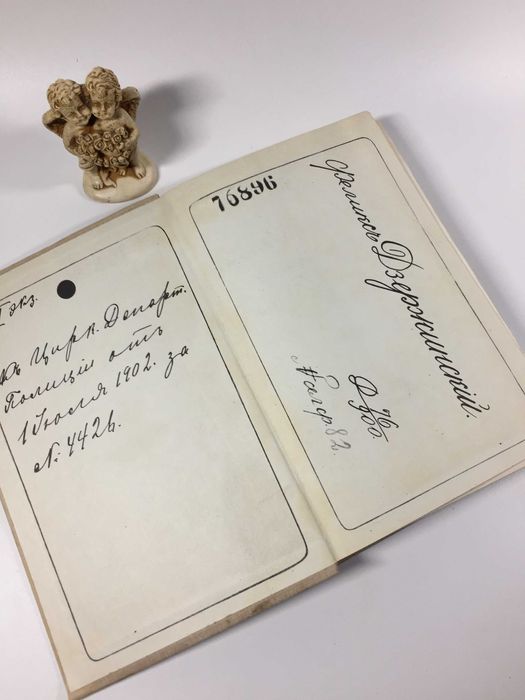 I экз.
Къ Цирк. Департ.
Полиціи отъ
1 Іюля 1902. за
№ 4426.
76896
Феликсъ Дзержинскій.
Д 76